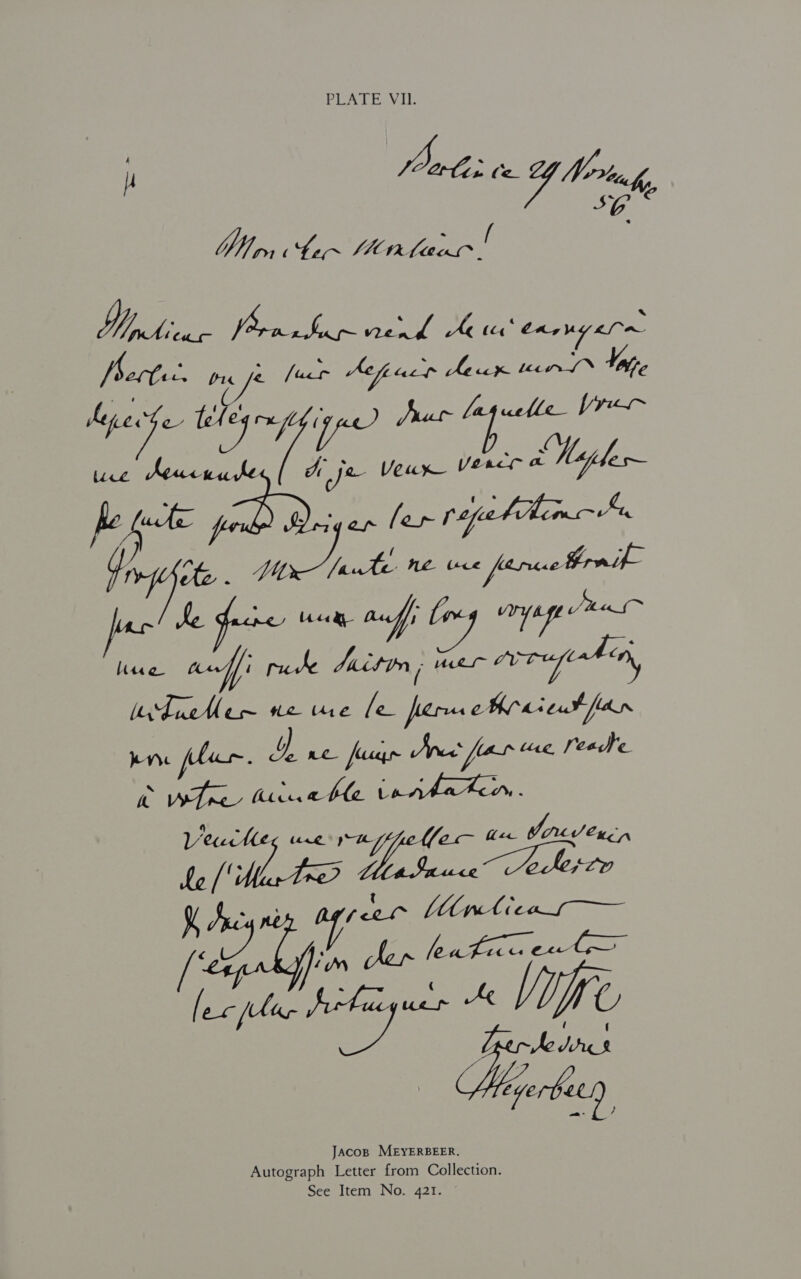 PLATE VII.
Berlin ce 29 Novembre
56.
Mon cher Monsieur!
Monsieur vient de m'envoyer a
Berlin ou je suis depuis deux mois Votre
depeche télégraphique dans laquelle Vous
me demandez si je veux venir a Naples
de suite pour diriger les répétitions du
Prophète. Ma santé ne me permettrait
pas de faire un aussi long voyage dans
une aussi rude saison, mes occupations
actuelles ne me le permettraient pas
non plus. Je ne puis donc pas me rendre
à votre aimable invitation.
Veuillez me rappeller au Souvenir
de l'illustre Madame Tedesco
& daignez agréer Monsieur
l'expression des sentiments
les plus distingués de Votre
tres devoué
Meyerbeer
JACOB MEYERBEER.
Autograph Letter from Collection.
See Item No. 421.